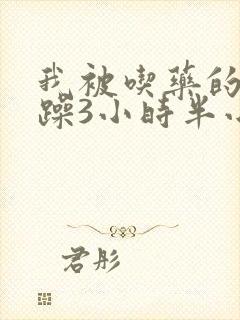 我被喫藥的
躁3小時半
君彤